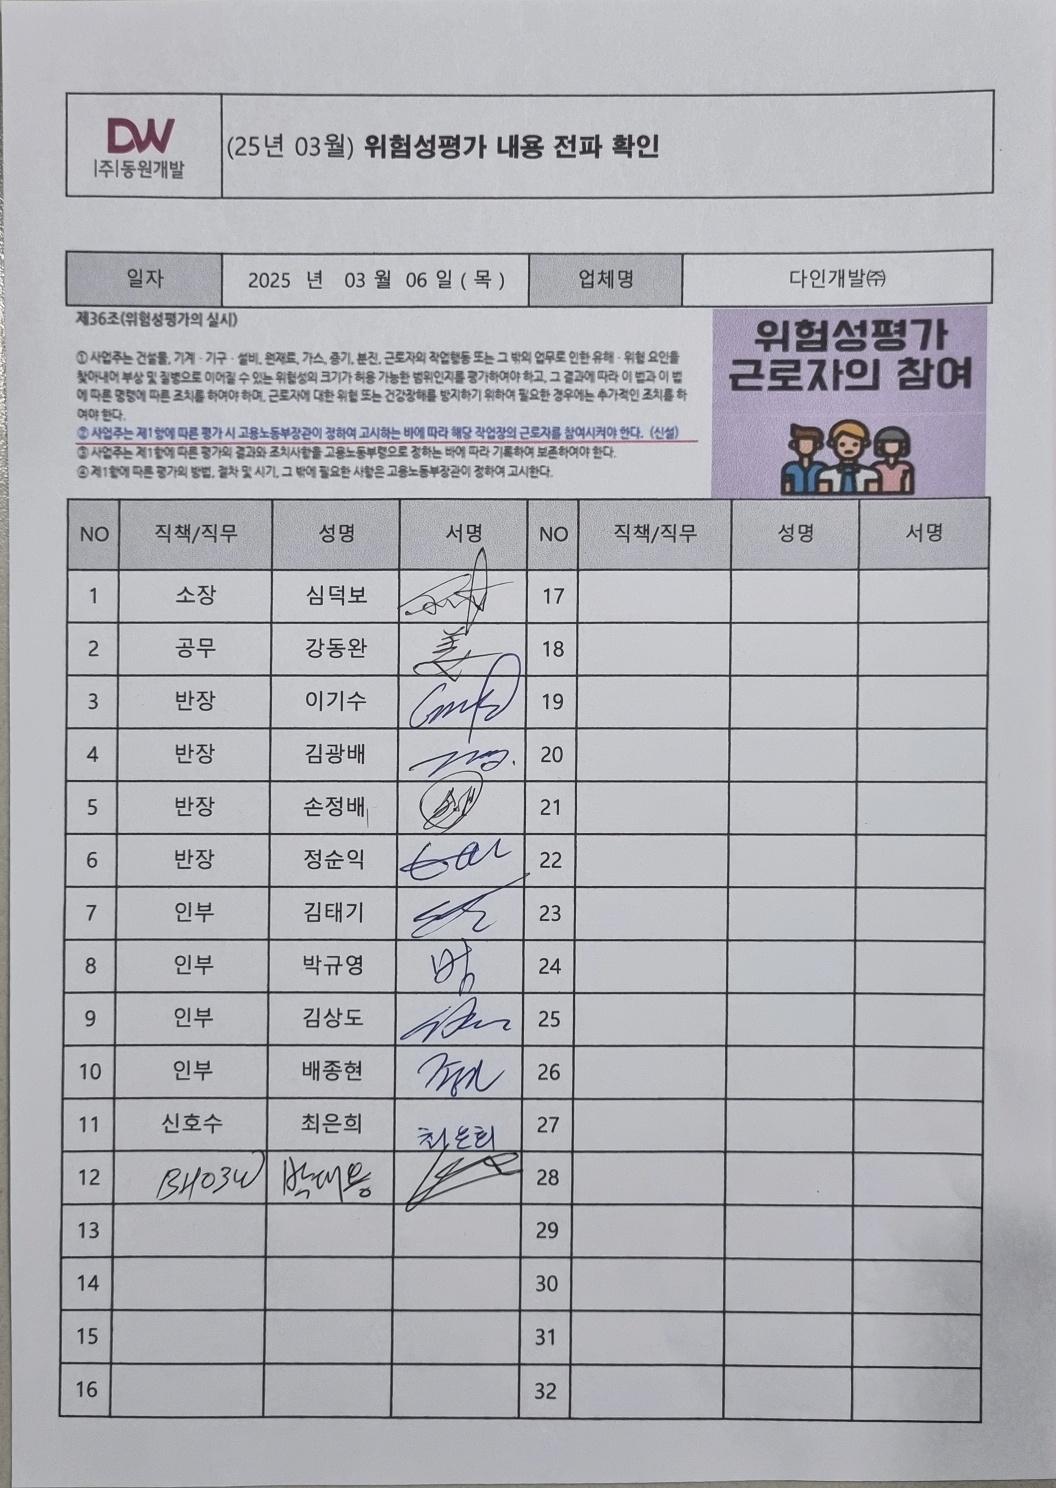 DW
|주|동원개발
(25년 03월) 위험성평가 내용 전파 확인
일자 2025 년 03 월 06 일 ( 목 ) 업체명 다인개발㈜
제36조(위험성평가의 실시)
① 사업주는 건설물, 기계·기구·설비, 원재료, 가스, 증기, 분진, 근로자의 작업행동 또는 그 밖의 업무로 인한 유해·위험 요인을
찾아내어 부상 및 질병으로 이어질 수 있는 위험성의 크기가 허용 가능한 범위인지를 평가하여야 하고, 그 결과에 따라 이 법과 이 법
에 따른 명령에 따른 조치를 하여야 하며, 근로자에 대한 위험 또는 건강장해를 방지하기 위하여 필요한 경우에는 추가적인 조치를 하
여야 한다.
② 사업주는 제1항에 따른 평가 시 고용노동부장관이 정하여 고시하는 바에 따라 해당 작업장의 근로자를 참여시켜야 한다. (신설)
③ 사업주는 제1항에 따른 평가의 결과와 조치사항을 고용노동부령으로 정하는 바에 따라 기록하여 보존하여야 한다.
④ 제1항에 따른 평가의 방법, 절차 및 시기, 그 밖에 필요한 사항은 고용노동부장관이 정하여 고시한다.
위험성평가
근로자의 참여
NO 직책/직무 성명 서명 NO 직책/직무 성명 서명
1 소장 심덕보 17
2 공무 강동완 姜 18
3 반장 이기수 19
4 반장 김광배 20
5 반장 손정배 21
6 반장 정순익 22
7 인부 김태기 23
8 인부 박규영 범 24
9 인부 김상도 25
10 인부 배종현 26
11 신호수 최은희 최은희 27
12 BH03W 박대용 28
13 29
14 30
15 31
16 32